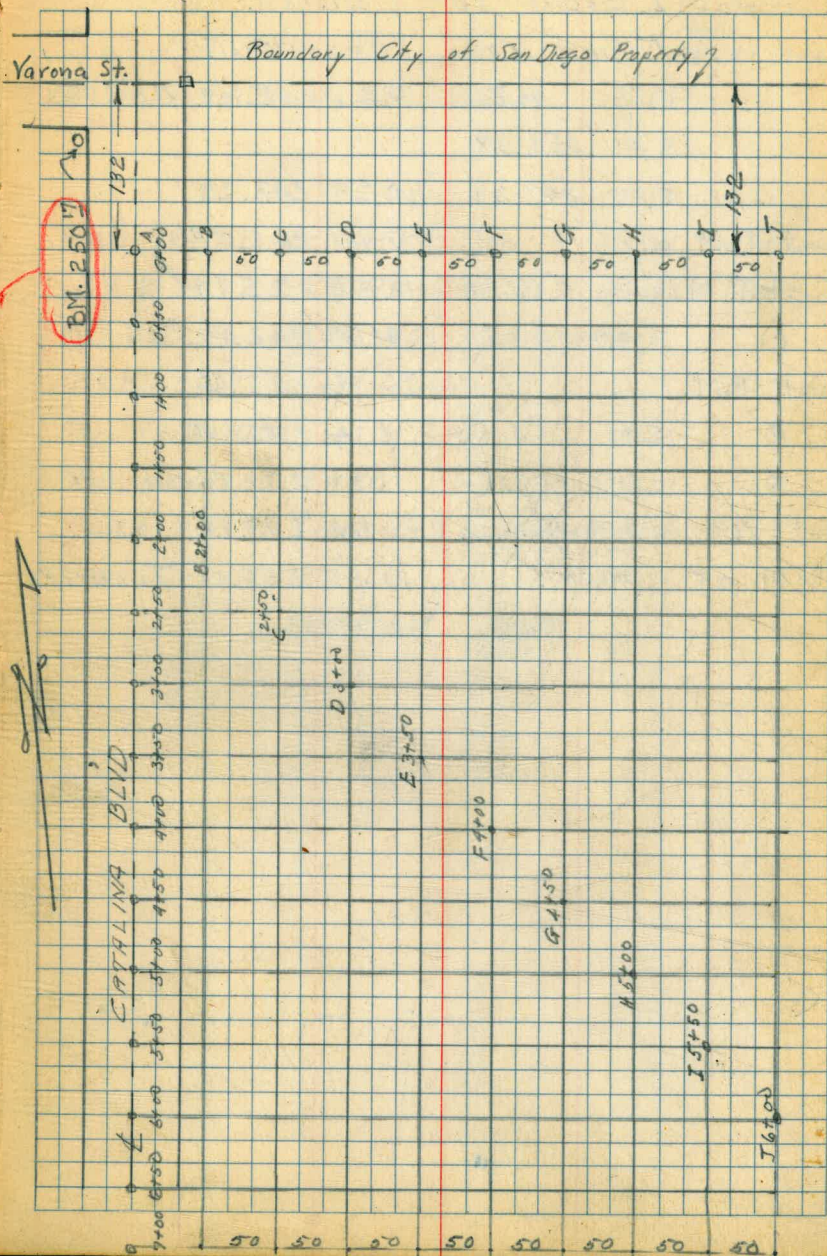 Boundary City of San Diego Property
Varona St.
132
132
BM. 250.17
A B C D E F G H I J
50 50 50 50 50 50 50 50 50
0+00
0+50
1+00
1+50
2+00
2+50
3+00
3+50
4+00
4+50
5+00
5+50
6+00
6+50
7+00
CATALINA BLVD
B 2+00
C 2+50
D 3+00
E 3+50
F 4+00
G 4+50
H 5+00
I 5+50
J 6+00
50 50 50 50 50 50 50 50